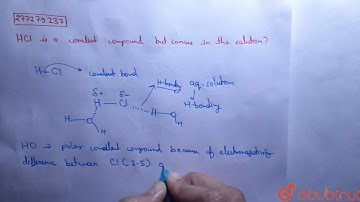 277279237
HCl is a covalent compound but ionises in the solution?
H÷Cl covalent bond
H-bonding aq. solution
δ+ δ-
H-bonding
H Cl H-O
H
O
H H
HCl is polar covalent compound because of electronegativity
difference between Cl (3.5) &
doubtnut